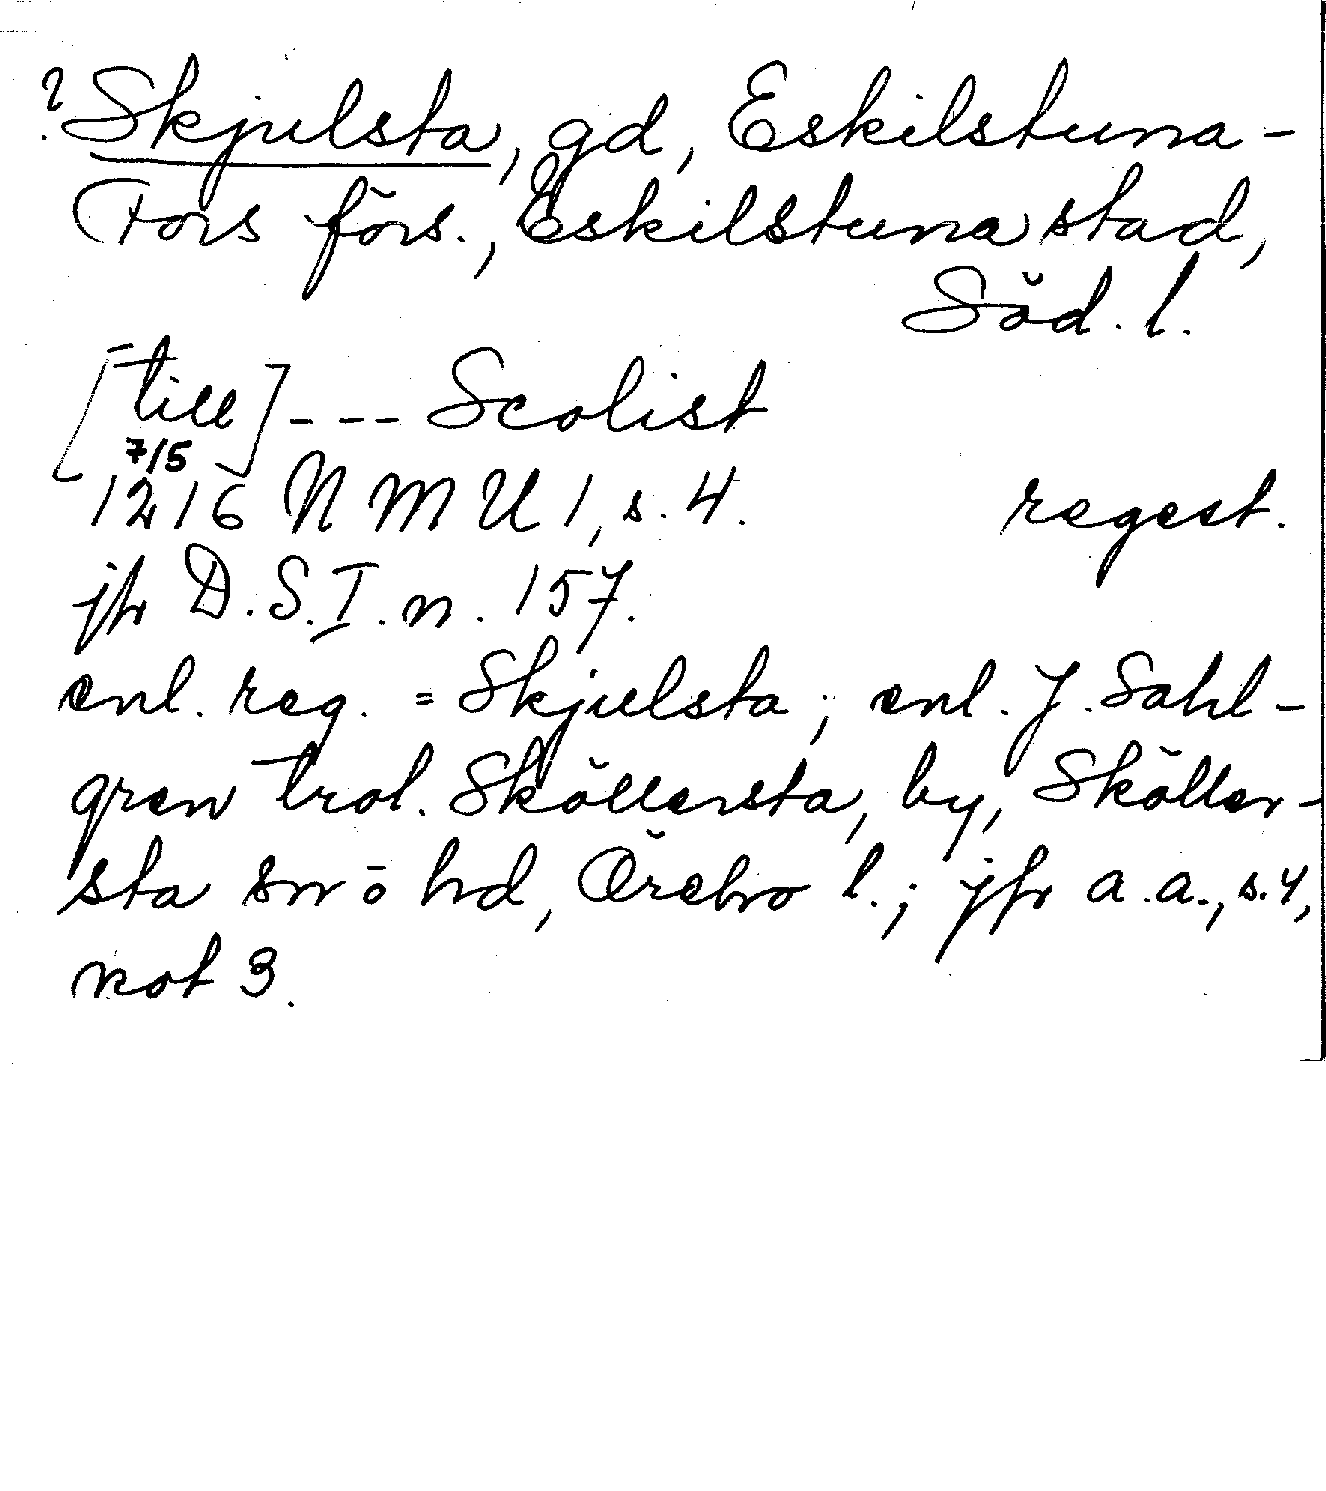 ? Skjulsta, gd, Eskilstuna-
Fors förs., Eskilstuna stad,
Söd. l.
[till] --- Scolist
7/5
1216 NMU 1, s. 4. regest.
jfr D.S.I.n. 157.
enl. reg. = Skjulsta; enl. J. Sahl-
gren trol. Sköllersta, by, Sköller-
sta sn o hd, Örebro l.; jfr a.a., s.4,
not 3.